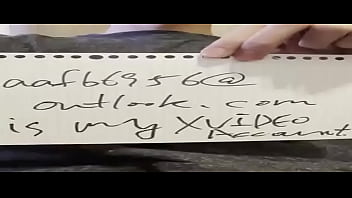 aafb6956@
outlook.com
is my XVIDEO
Account